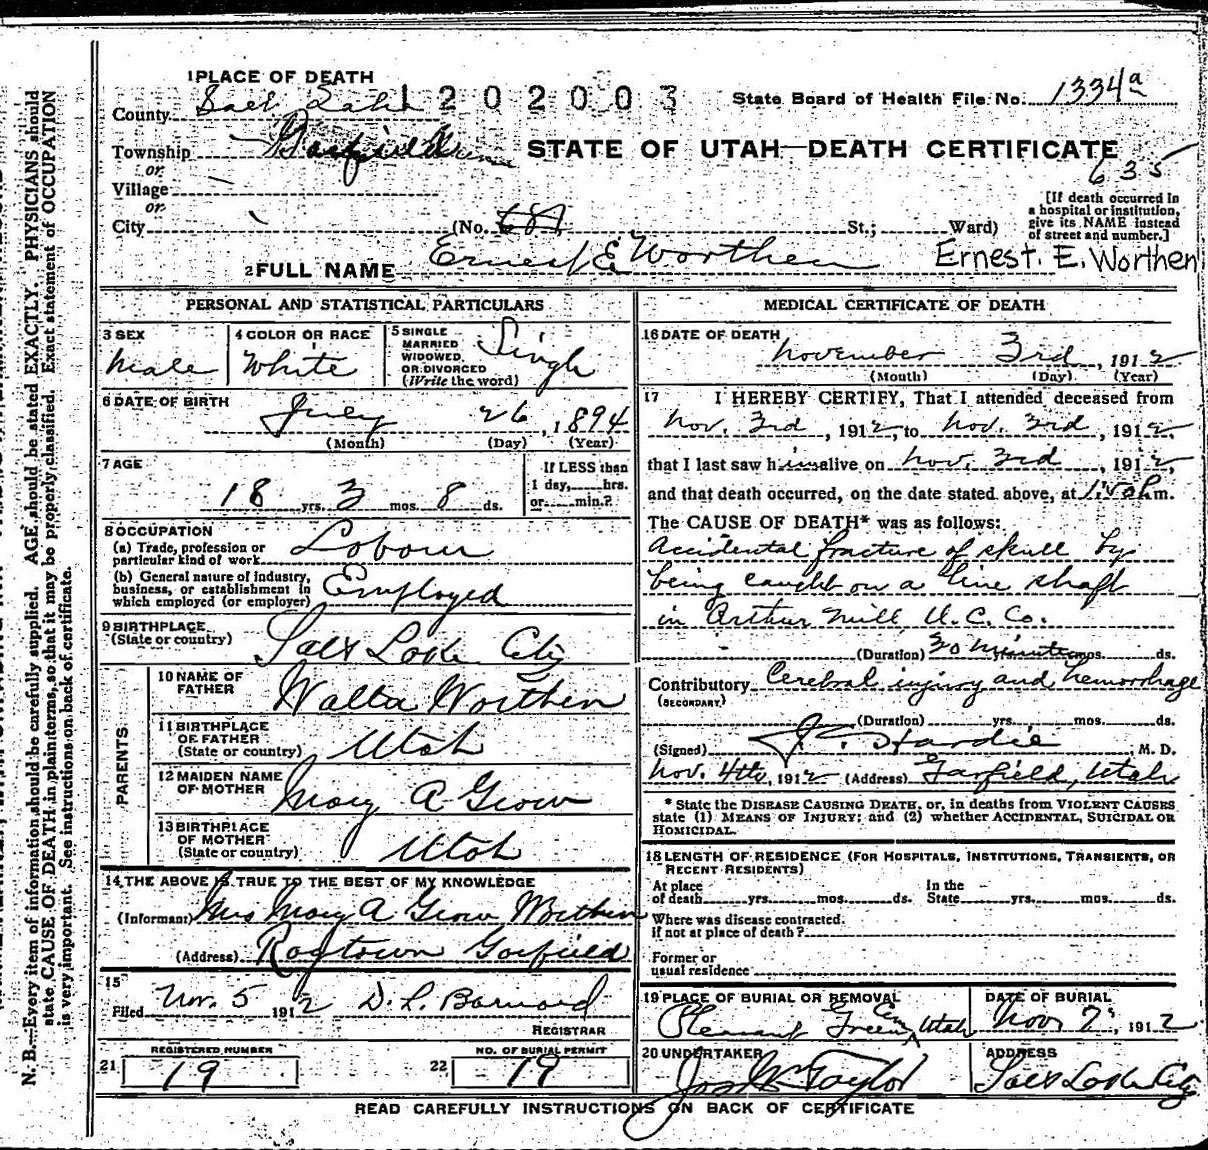 1 PLACE OF DEATH
County Salt Lake 1202003 State Board of Health File No. 1334a
Township Garfield STATE OF UTAH—DEATH CERTIFICATE
or
635
Village
or
[If death occurred in a hospital or institution, give its NAME instead of street and number.]
City (No. St.; Ward)
2 FULL NAME Ernest E Worthen Ernest. E. Worthen
PERSONAL AND STATISTICAL PARTICULARS
3 SEX
Male
4 COLOR OR RACE
White
5 SINGLE
MARRIED
WIDOWED
OR DIVORCED
(Write the word)
Single
6 DATE OF BIRTH
July 26, 1894
(Month) (Day) (Year)
7 AGE
18 yrs. 3 mos. 8 ds.
If LESS than
1 day, hrs.
or min.?
8 OCCUPATION
(a) Trade, profession or
particular kind of work Labour
(b) General nature of industry,
business, or establishment in
which employed (or employer) Employed
9 BIRTHPLACE
(State or country) Salt Lake City
PARENTS
10 NAME OF
FATHER Walta Worthen
11 BIRTHPLACE
OF FATHER
(State or country) Utah
12 MAIDEN NAME
OF MOTHER Mary A Grow
13 BIRTHPLACE
OF MOTHER
(State or country) Utah
14 THE ABOVE IS TRUE TO THE BEST OF MY KNOWLEDGE
(Informant) Mrs Mary A Grow Worthen
(Address) Ragtown Garfield
15
Filed Nov. 5 1912 D. L. Barnard
REGISTRAR
21 REGISTERED NUMBER
19
22 NO. OF BURIAL PERMIT
19
MEDICAL CERTIFICATE OF DEATH
16 DATE OF DEATH
November 3rd, 1912
(Month) (Day) (Year)
17 I HEREBY CERTIFY, That I attended deceased from
Nov. 3rd, 1912, to Nov. 3rd, 1912,
that I last saw him alive on Nov. 3rd, 1912,
and that death occurred, on the date stated above, at m.
The CAUSE OF DEATH* was as follows:
Accidental fracture of skull by
being caught on a line shaft
in Arthur Mill, U. C. Co.
(Duration) 30 minutes mos. ds.
Contributory Cerebral injury and hemorrhage
(SECONDARY)
(Duration) yrs. mos. ds.
(Signed) Hardie, M. D.
Nov. 4th, 1912 (Address) Garfield, Utah
* State the DISEASE CAUSING DEATH, or, in deaths from VIOLENT CAUSES
state (1) MEANS OF INJURY; and (2) whether ACCIDENTAL, SUICIDAL OR
HOMICIDAL.
18 LENGTH OF RESIDENCE (FOR HOSPITALS, INSTITUTIONS, TRANSIENTS, OR
RECENT RESIDENTS)
At place
of death yrs. mos. ds.
In the
State yrs. mos. ds.
Where was disease contracted.
if not at place of death?
Former or
usual residence
19 PLACE OF BURIAL OR REMOVAL
Pleasant Green Cem Utah
DATE OF BURIAL
Nov 7, 1912
20 UNDERTAKER
Jos Wm Taylor
ADDRESS
Salt Lake City
READ CAREFULLY INSTRUCTIONS ON BACK OF CERTIFICATE
N. B.—Every item of information should be carefully supplied. AGE should be stated EXACTLY. PHYSICIANS should
state CAUSE OF DEATH in plain terms, so that it may be properly classified. Exact statement of OCCUPATION
is very important. See instructions on back of certificate.